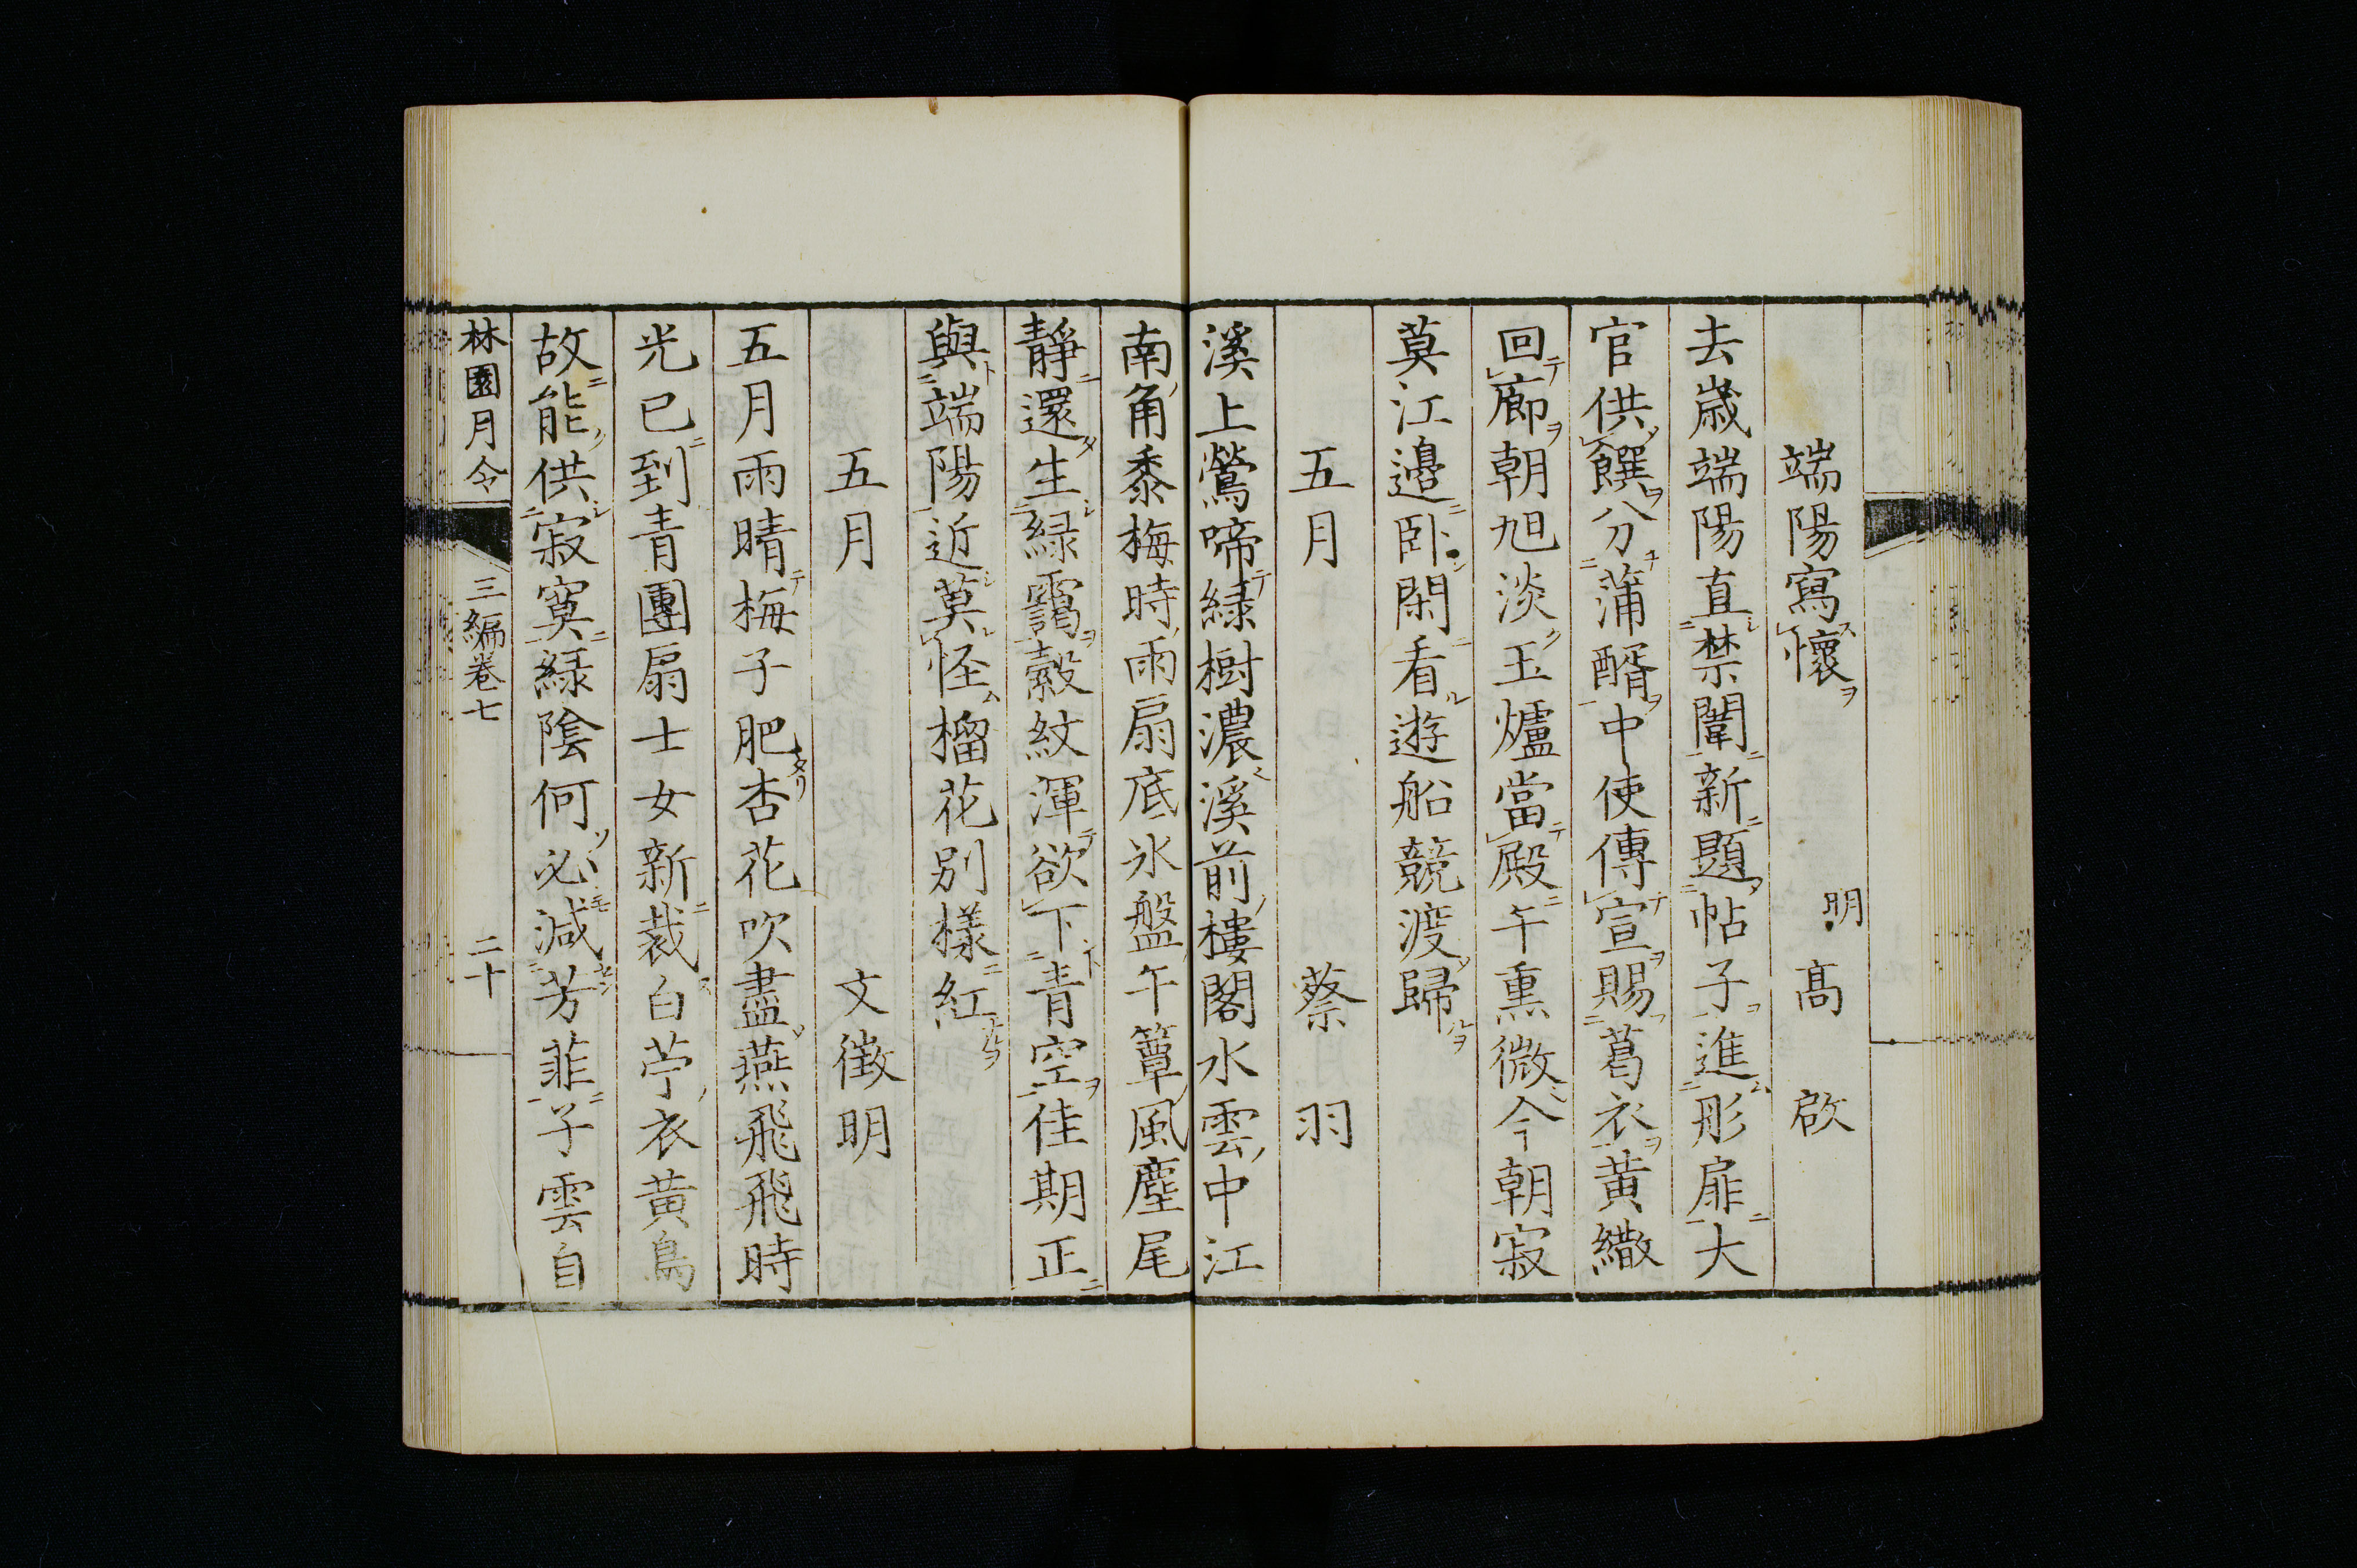 端陽寫懷　明　高　啟
去歲端陽直禁闈新題帖子進彤扉大
官供饌分蒲醑中使傳宣賜葛衣黄繖
回廊朝旭淡玉爐當殿午熏微今朝寂
莫江邊臥閑看遊船競渡歸
五月　蔡　羽
溪上鶯啼緑樹濃溪前樓閣水雲中江
南角黍梅時雨扇底氷盤午簟風塵尾
靜還生緑靄縠紋渾欲下青空佳期正
與端陽近莫怪榴花別樣紅
五月　文徵明
五月雨晴梅子肥杏花吹盡燕飛飛時
光已到青團扇士女新裁白苧衣黄鳥
故能供寂寞緑陰何必減芳菲子雲自
林園月令　三編卷七　二十